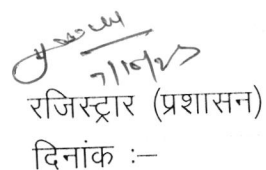 7/10/23
रजिस्ट्रार (प्रशासन)
दिनांक :–